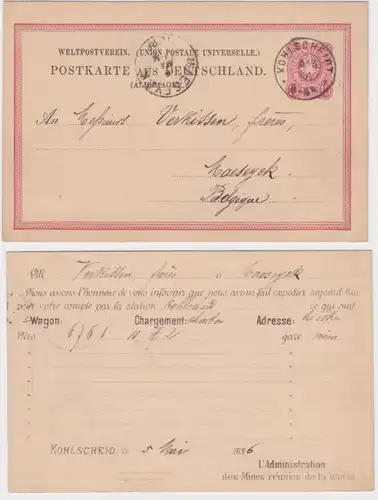 WELTPOSTVEREIN. (UNION POSTALE UNIVERSELLE.)
POSTKARTE AUS DEUTSCHLAND.
(ALLEMAGNE)
KOHLSCHEIDT
MAESEYCK
An
Verkissen, frères,
Maeseyck
Belgique
M Verkissen frères à Maeseyck
Nous avons l'honneur de vous informer que nous avons fait expédier aujourd'hui
pour votre compte par la station Kohlscheid ce qui suit
Wagon: Chargement: Adresse:
Nro 6761 10 gare
KOHLSCHEID, le 5 Mai 1886
L'Administration
des Mines réunies de la Wurm